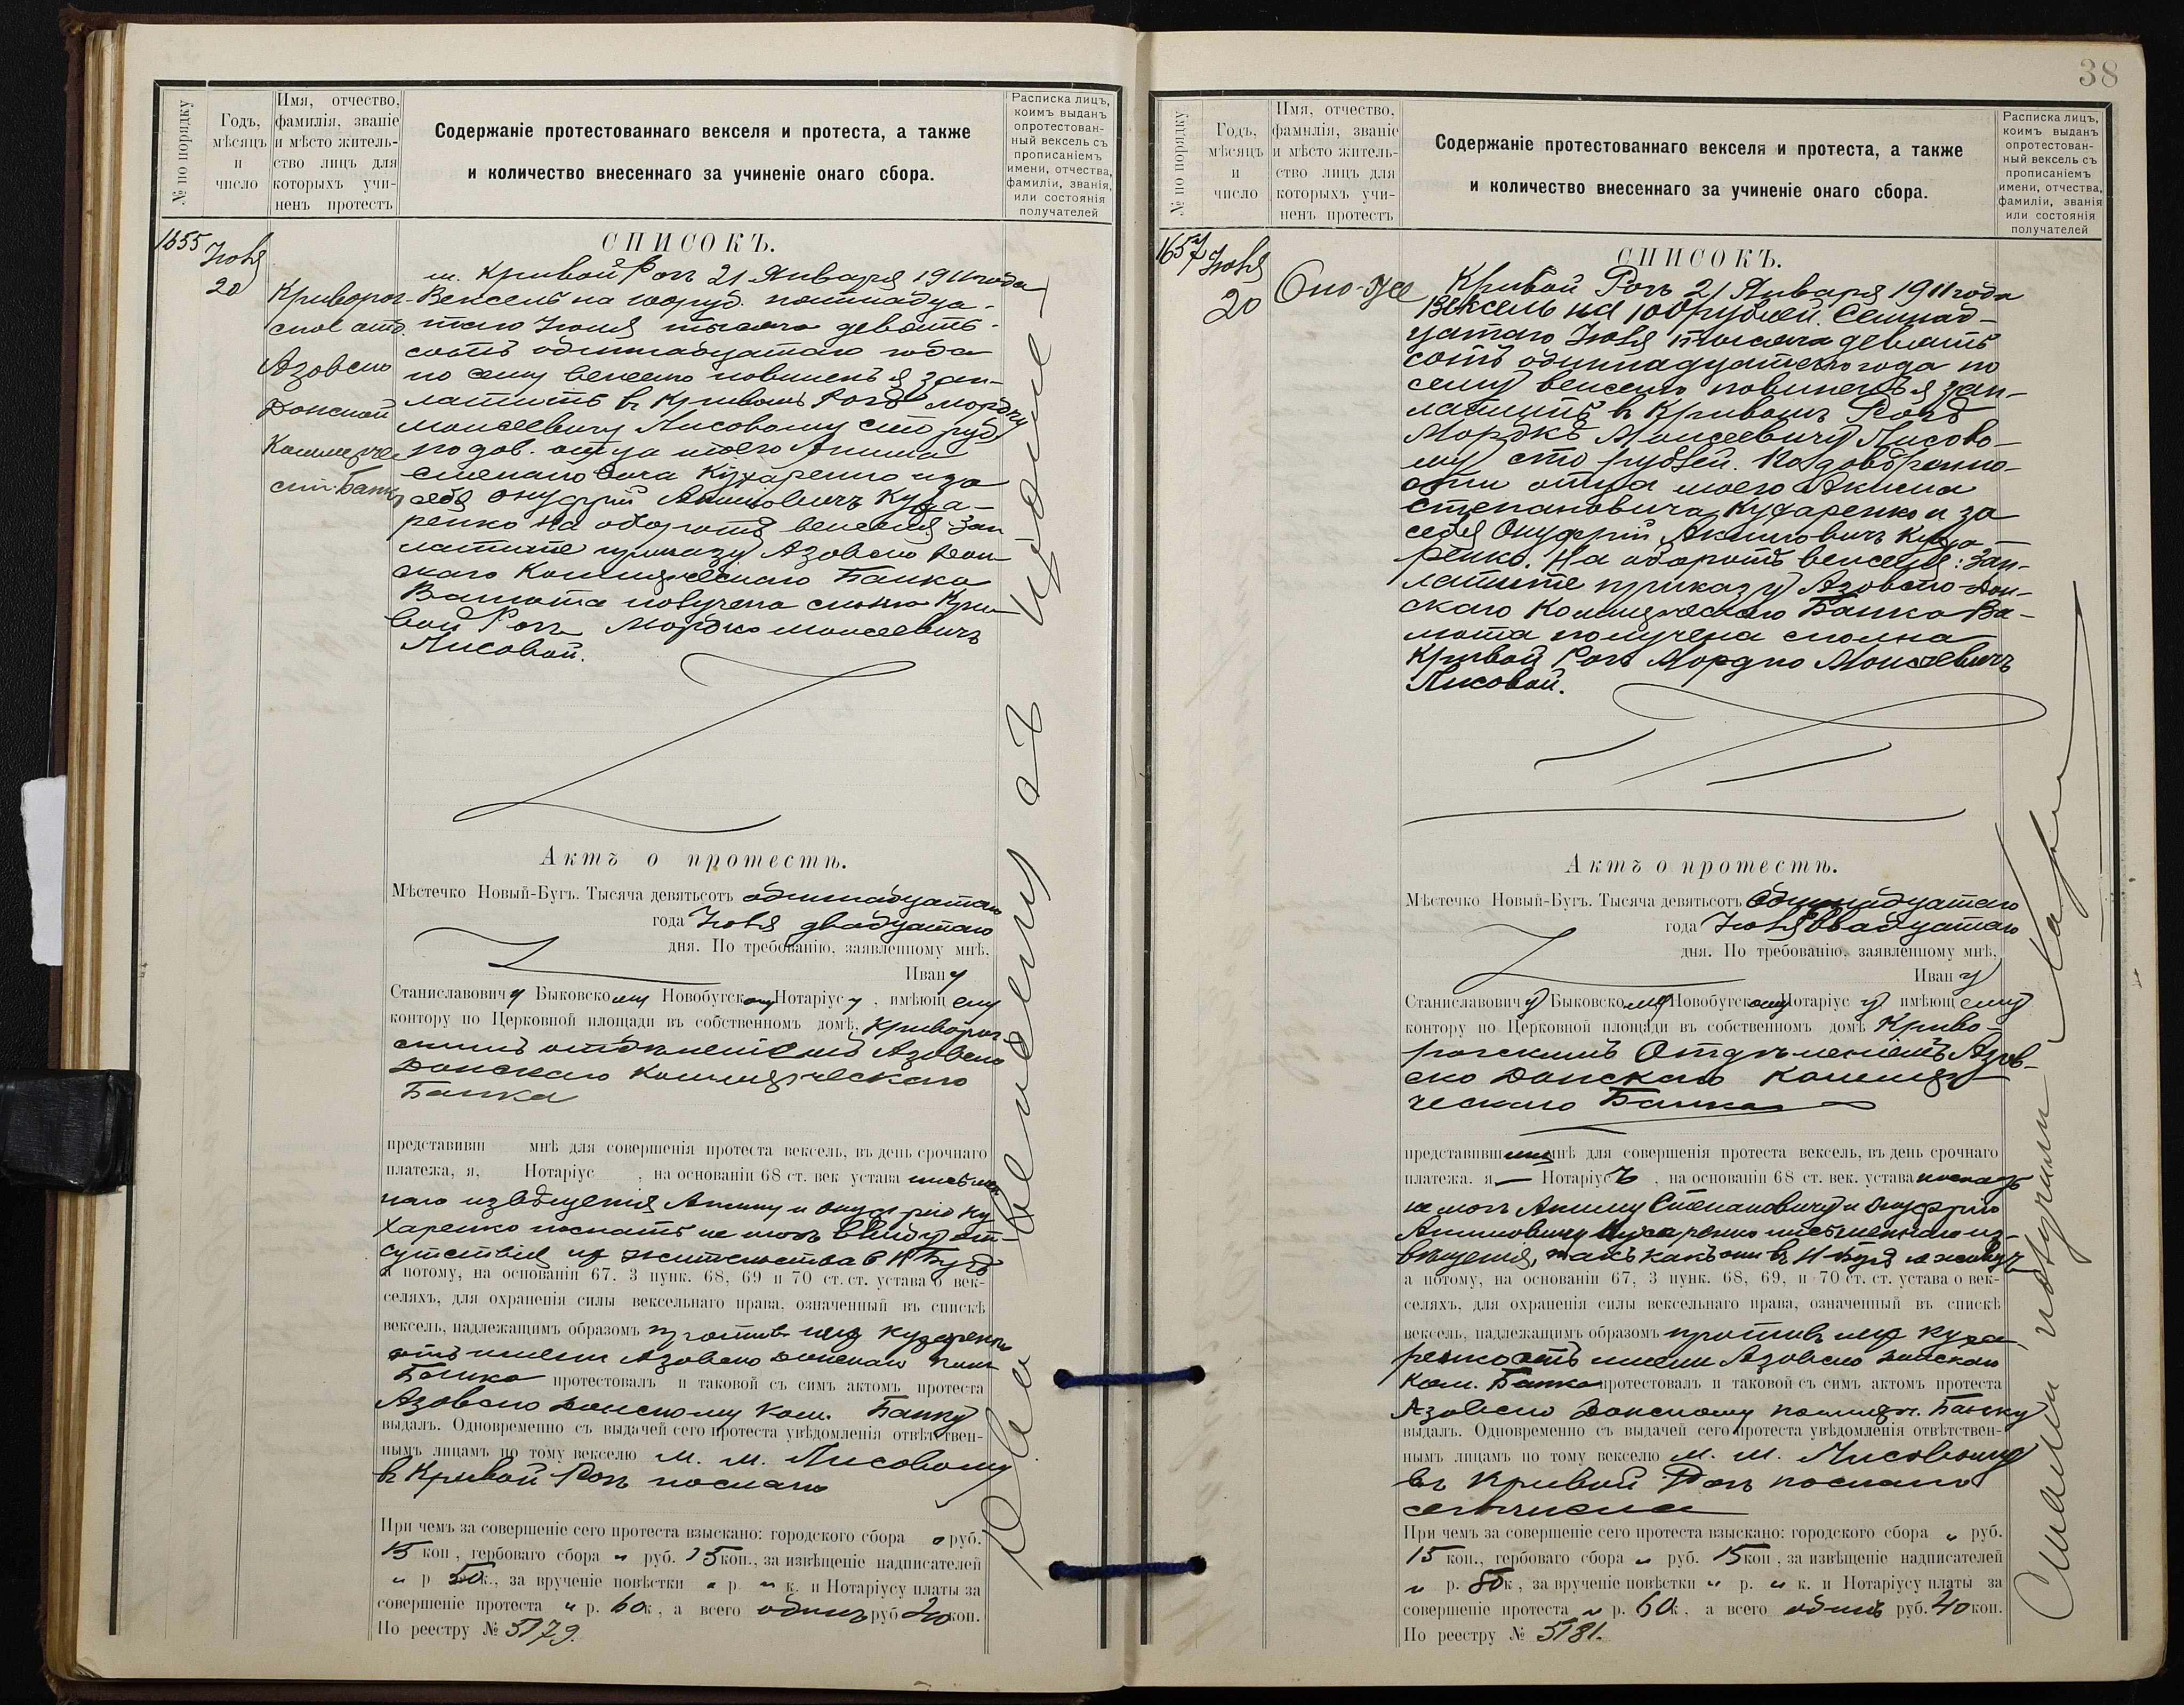 № по порядку
Годъ,
мѣсяцъ
и
число
Имя, отчество,
фамилія, званіе
и мѣсто житель-
ство лицъ для
которыхъ учи-
ненъ протестъ
Содержаніе протестованнаго векселя и протеста, а также
и количество внесеннаго за учиненіе онаго сбора.
Расписка лицъ,
коимъ выданъ
опротестован-
ный вексель съ
прописаніемъ
имени, отчества,
фамиліи, званія,
или состоянія
получателей
1655
Іюля
20
Криворог-
ское отд.
Азовско
Донской
Коммерче
Банкъ
СПИСОКЪ.
м. Кривой Рогъ 21 Января 1911 года
Вексель на 100 руб.
девять-
сотъ одиннадцатаго года
по сему векселю повиненъ я зап-
латить въ Кривомъ Рогѣ Мордку
Моисеевичу Лисовому сто руб.
по дов. отца моего Акима
Кухаренко и за
себя Онуфрій Акимовичъ Куха-
ренко на оборотѣ векселя: Зап
латите приказу Азовско Дон
скаго Коммерческаго Банка
Валюта получена сполна Кри
вой Рогъ Мордко Моисеевичъ
Лисовой.
Актъ о протестѣ.
Мѣстечко Новый-Бугъ. Тысяча девятьсотъ одиннадцатаго
года Іюля двадцатаго
дня. По требованію, заявленному мнѣ,
Ивану
Станиславовичу Быковскому Новобугскому Нотаріусу, имѣющему
контору по Церковной площади въ собственномъ домѣ, Криворог
скимъ отдѣленіемъ Азовско
Донскаго Коммерческаго
Банка
представивш мнѣ для совершенія протеста вексель, въ день срочнаго
платежа, я, Нотаріус , на основаніи 68 ст. век устава письмен
наго извѣщенія Акиму и Онуфрію Ку
харенко послать не могъ ввиду от-
сутствія ихъ жительства в Н Бугѣ
а потому, на основаніи 67, 3 пунк. 68, 69 и 70 ст. ст. устава о век-
селяхъ, для охраненія силы вексельнаго права, означенный въ спискѣ
вексель, надлежащимъ образомъ противъ Кухаренко
отъ имени Азовско Донскаго Ком
Банка протестовалъ и таковой съ симъ актомъ протеста
Азовско Донскому Ком. Банку
выдалъ. Одновременно съ выдачей сего протеста увѣдомленія отвѣтствен-
нымъ лицамъ по тому векселю М. М. Лисовому
въ Кривой Рогъ послано
При чемъ за совершеніе сего протеста взыскано: городского сбора „ руб.
15 коп., гербоваго сбора „ руб. 15 коп., за извѣщеніе надписателей
„ р 50 к., за врученіе повѣстки „ р. „ к. и Нотаріусу платы за
совершеніе протеста „ р. 60 к., а всего одинъ руб 40 коп.
По реестру № 5179.
38
№ по порядку
Годъ,
мѣсяцъ
и
число
Имя, отчество,
фамилія, званіе
и мѣсто житель-
ство лицъ для
которыхъ учи-
ненъ протестъ
Содержаніе протестованнаго векселя и протеста, а также
и количество внесеннаго за учиненіе онаго сбора.
Расписка лицъ,
коимъ выданъ
опротестован-
ный вексель съ
прописаніемъ
имени, отчества,
фамиліи, званія
или состоянія
получателей
1657
Іюля
20
Оно-же
СПИСОКЪ.
Кривой Рогъ 21 Января 1911 года
Вексель на 100 рублей. Семнад-
цатаго Іюля тысяча девять
сотъ одиннадцатаго года по
сему векселю повиненъ я зап-
латить въ Кривомъ Рогѣ
Мордкѣ Моисеевичу Лисово-
му сто рублей. По довѣренно-
сти отца моего Акима
Степановича Кухаренко и за
себя Онуфрій Акимовичъ Куха-
ренко. На оборотѣ векселя: Зап-
латите приказу Азовско-Дон-
скаго Коммерческаго Банка Ва-
люта получена сполна
Кривой Рогъ Мордко Моисеевичъ
Лисовой.
Актъ о протестѣ.
Мѣстечко Новый-Бугъ. Тысяча девятьсотъ одиннадцатаго
года Іюля двадцатаго
дня. По требованію, заявленному мнѣ,
Ивану
Станиславовичу Быковскому Новобугскому Нотаріусу имѣющему
контору по Церковной площади въ собственномъ домѣ Криво-
рогскимъ Отдѣленіемъ Азов-
ско Донскаго Коммер-
ческаго Банка
представившимъ мнѣ для совершенія протеста вексель, въ день срочнаго
платежа. я — Нотаріусъ , на основаніи 68 ст. век. устава послать
не могъ Акиму Степановичу и Онуфрію
Акимовичу Кухаренко письменнаго из-
вѣщенія, такъ какъ они въ Н-Бугѣ не живутъ
а потому, на основаніи 67, 3 пунк. 68, 69, и 70 ст. ст. устава о век-
селяхъ, для охраненія силы вексельнаго права, означенный въ спискѣ
вексель, надлежащимъ образомъ противъ Куха
ренко отъ имени Азовско Донскаго
Ком. Банка протестовалъ и таковой съ симъ актомъ протеста
Азовско Донскому коммерч. Банку
выдалъ. Одновременно съ выдачей сего протеста увѣдомленія отвѣтствен-
нымъ лицамъ по тому векселю М. М. Лисовому
въ Кривой Рогъ послано
сего числа
При чемъ за совершеніе сего протеста взыскано: городского сбора „ руб.
15 коп., гербоваго сбора „ руб. 15 коп, за извѣщеніе надписателей
„ р. 50 к, за врученіе повѣстки „ р. „ к. и Нотаріусу платы за
совершеніе протеста „ р. 60 к, а всего одинъ руб. 40 коп.
По реестру № 5181.